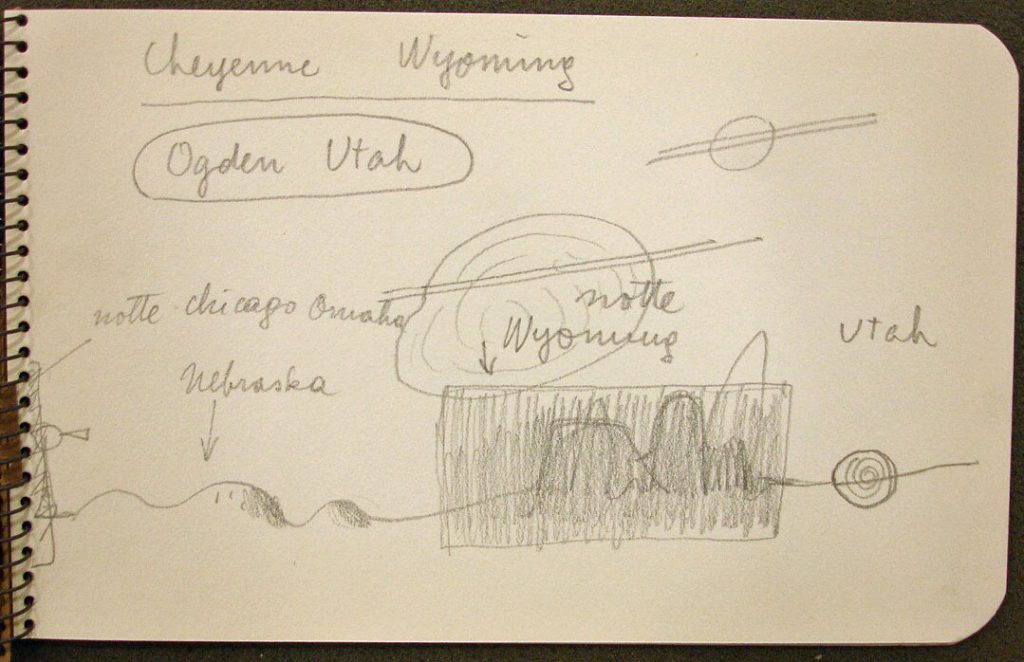 Cheyenne Wyoming
Ogden Utah
notte chicago Omaha
Nebraska
notte
Wyoming
Utah